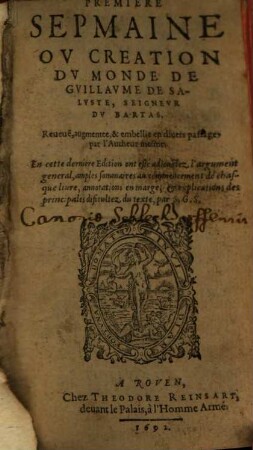 PREMIERE
SEPMAINE
OV CREATION
DV MONDE DE
GVILLAVME DE SA-
LVSTE, SEIGNEVR
DV BARTAS.
Reueuë, augmentée, & embellie en diuers passages
par l'Autheur mesme.
En cette derniere Edition ont esté adioustez, l'argument
general, amples sommaires au commencement de chas-
que liure, annotations en marge, & explications des
principales difficultez, du texte, par S. G. S.
Canonie
A ROVEN,
Chez THEODORE REINSART,
deuant le Palais, à l'Homme Armé.
1692